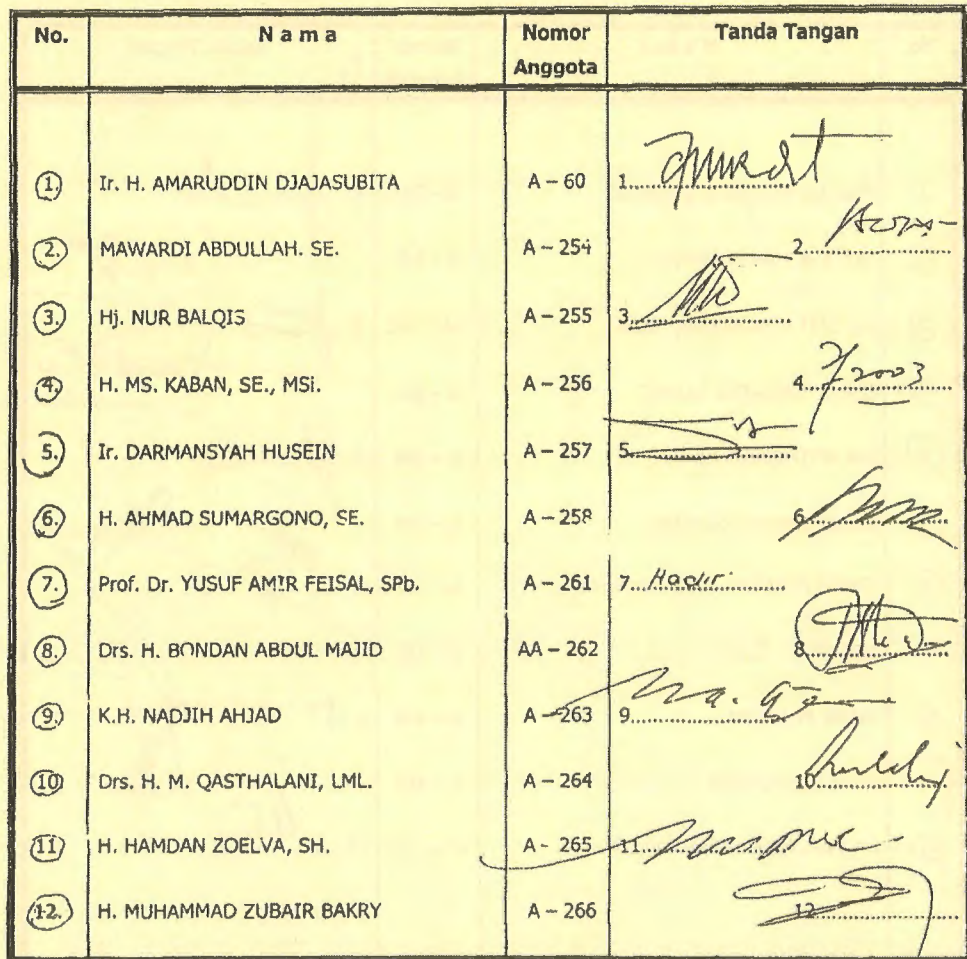 No. Nama Nomor Anggota Tanda Tangan
1. Ir. H. AMARUDDIN DJAJASUBITA A – 60 1.
2. MAWARDI ABDULLAH. SE. A – 254 2.
3. Hj. NUR BALQIS A – 255 3.
4. H. MS. KABAN, SE., MSi. A – 256 4. 2003
5. Ir. DARMANSYAH HUSEIN A – 257 5.
6. H. AHMAD SUMARGONO, SE. A – 258 6.
7. Prof. Dr. YUSUF AMIR FEISAL, SPb. A – 261 7. Hadir
8. Drs. H. BONDAN ABDUL MAJID AA – 262 8.
9. K.H. NADJIH AHJAD A – 263 9.
10 Drs. H. M. QASTHALANI, LML. A – 264 10.
11) H. HAMDAN ZOELVA, SH. A - 265 11.
12. H. MUHAMMAD ZUBAIR BAKRY A – 266 12.